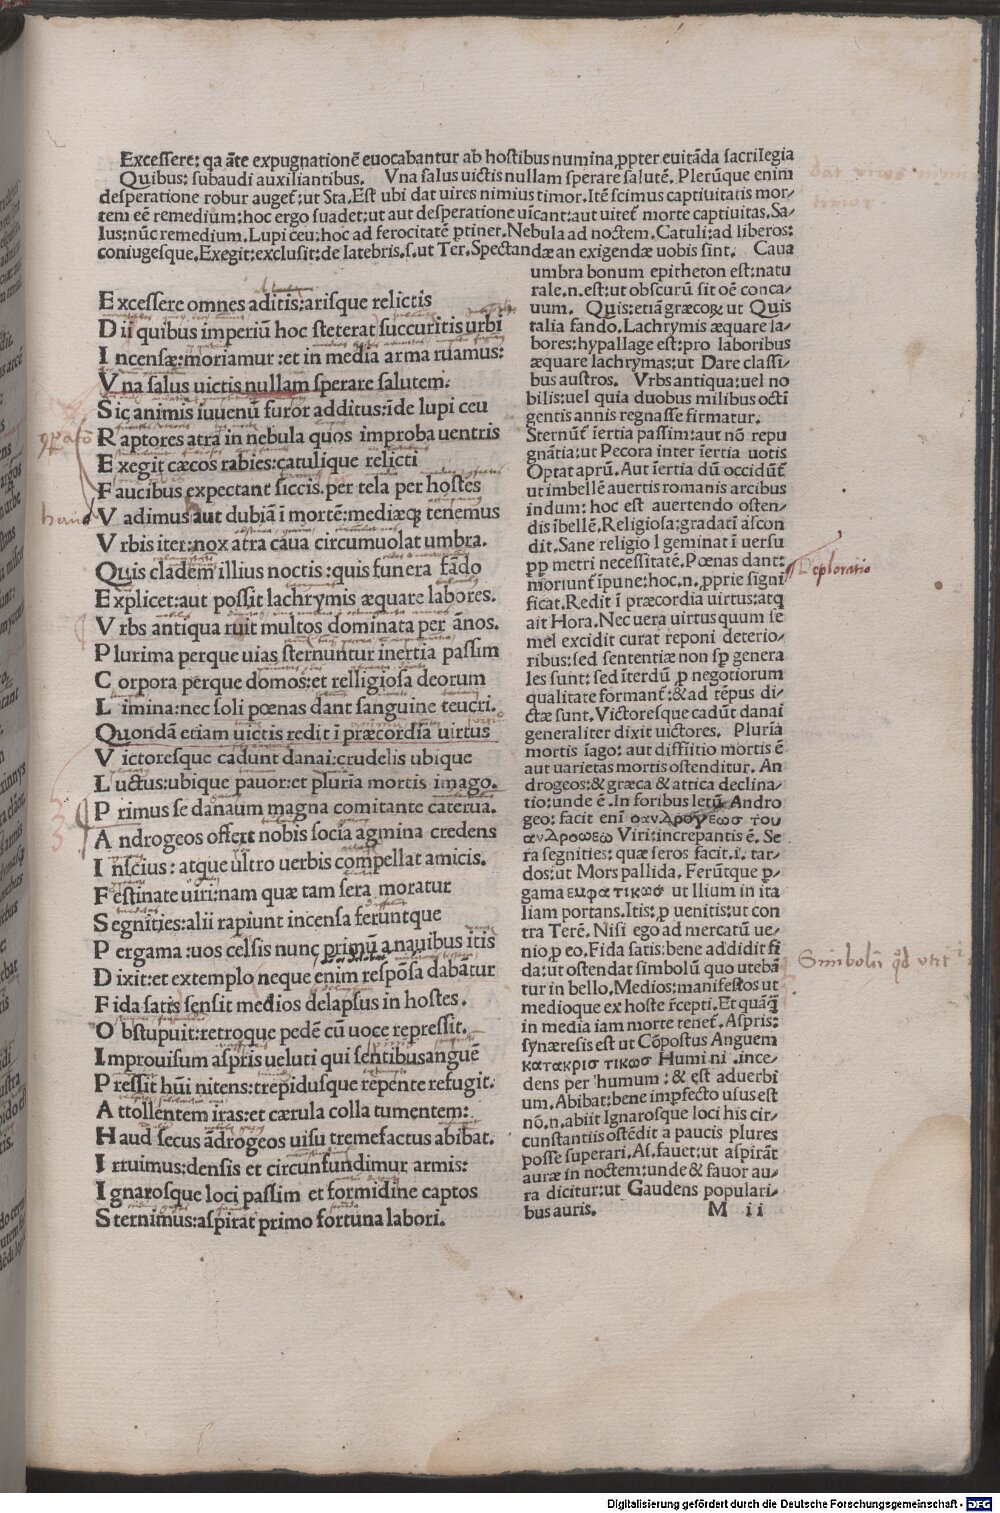 Excessere: qa ãte expugnationẽ euocabantur ab hostibus numina ꝓpter euitãda sacrilegia
Quibus: subaudi auxiliantibus. Vna salus uictis nullam sperare salutẽ. Plerũque enim
desperatione robur auget̃:ut Sta. Est ubi dat uires nimius timor. Itẽ scimus captiuitatis mor⸗
tem eẽ remedium:hoc ergo suadet:ut aut desperatione uĩcant:aut uitet̃ morte captiuitas. Sa⸗
lus:nũc remedium. Lupi ceu:hoc ad ferocitatẽ ꝑtinet. Nebula ad noctem. Catuli:ad liberos:
coniugesque. Exegit:exclusit:de latebris.s.ut Ter. Spectandæ an exigendæ uobis sint. Caua
umbra bonum epitheton est:natu
rale.n.est:ut obscurũ sit oẽ conca⸗
uum. Quis:etiã græcoꝝ ut Quis
talia fando. Lachrymis æquare la⸗
bores:hypallage est:pro laboribus
æquare lachrymas:ut Dare classi⸗
bus austros. Vrbs antiqua:uel no
bilis:uel quia duobus milibus octĩ
gentis annis regnasse firmatur.
Sternũt̃ ĩertia passim:aut nõ repu
gnãtia:ut Pecora inter ĩertia uotis
Optat aprũ. Aut ĩertia dũ occidũt̃
ut imbellẽ auertis romanis arcibus
indum: hoc est auertendo osten⸗
dis ĩbellẽ. Religiosa:gradatĩ ascon
dit. Sane religio l geminat ĩ uersu
ꝓp metri necessitatẽ. Pœnas dant:
moriunt̃ ĩpune:hoc.n.ꝓprie signi
ficat. Redit ĩ præcordia uirtus:atq
ait Hora. Nec uera uirtus quum se
mel excidit curat reponi deterio⸗
ribus:sed sententiæ non sꝑ genera
les sunt: sed ĩterdũ ꝓ negotiorum
qualitate formant̃:& ad tẽpus di⸗
ctæ sunt. Victoresque cadũt danai
generaliter dixit uictores. Pluria
mortis ĩago: aut diffiitio mortis ẽ
aut uarietas mortis ostenditur. An
drogeos:& græca & attica declina⸗
tio:unde ẽ. In foribus letũ Andro
geo: facit enĩ ὁ ανδρογεωσ του
ανδροωεω Viri:increpantis ẽ. Se
ra segnities: quæ seros facit.i. tar⸗
dos:ut Mors pallida. Ferũtque ꝑ⸗
gama εμφατικωσ ut Ilium in ita
liam portans. Itis:ꝓ uenitis:ut con
tra Terẽ. Nisi ego ad mercatũ ue⸗
nio ꝓ eo. Fida satis: bene addidit fi
da:ut ostendat simbolũ quo utebã
tur in bello. Medios:manifestos ut
medioque ex hoste r̃cepti. Et quãq̃
in media iam morte tenet̃. Aspris:
synæresis est ut Cõpostus Anguem
κατακριστικωσ Humi ni .ince⸗
dens per humum : & est aduerbi
um. Abibat:bene impfecto usus est
nõ.n.abiit Ignarosque loci his cir⸗
cunstantiis ostẽdit a paucis plures
posse superari. As.fauet:ut aspirãt
auræ in noctem:unde & fauor au⸗
ra dicitur:ut Gaudens populari⸗
bus auris. M ii
Excessere omnes aditis:arisque relictis
Dii quibus imperiũ hoc steterat succuritis urbi
Incensæ:moriamur:et in media arma ruamus:
Vna salus uictis nullam sperare salutem.
Sic animis iuuenũ furor additus:ĩde lupi ceu
Raptores atra in nebula quos improba uentris
Exegit cæcos rabies:catulique relicti
Faucibus expectant siccis.per tela per hostes
Vadimus aut dubiã ĩ mortẽ:mediæqꝫ tenemus
Vrbis iter:nox atra caua circumuolat umbra.
Quis cladem illius noctis :quis funera fãdo
Explicet:aut possit lachrymis æquare labores.
Vrbs antiqua ruit multos dominata per ãnos.
Plurima perque uias sternuntur inertia passim
Corpora perque domos:et relligiosa deorum
Limina:nec soli pœnas dant sanguine teucri.
Quondã etiam uictis redit ĩ præcordia uirtus
Victoresque cadunt danai:crudelis ubique
Luctus:ubique pauor:et pluria mortis imago.
Primus se danaum magna comitante caterua.
Androgeos offert nobis socia agmina credens
Inscius: atque ultro uerbis compellat amicis.
Festinate uiri:nam quæ tam sera moratur
Segnities:alii rapiunt incensa feruntque
Pergama :uos celsis nunc primũ a nauibus itis
Dixit:et extemplo neque enim respõsa dabãtur
Fida satis sensit medios delapsus in hostes.
Obstupuit:retroque pedẽ cũ uoce repressit.
Improuisum aspris ueluti qui sentibus anguẽ
Pressit hũi nitens:trepidusque repente refugit.
Attollentem iras:et cærula colla tumentem:
Haud secus ãdrogeos uisu tremefactus abibat.
Irruimus:densis et circunfundimur armis:
Ignarosque loci passim et formidine captos
Sternimus:aspirat primo fortuna labori.
dat vires nimius
timor.
haud
Deploratio
Simbolũ qd utit
Digitalisierung gefördert durch die Deutsche Forschungsgemeinschaft - DFG